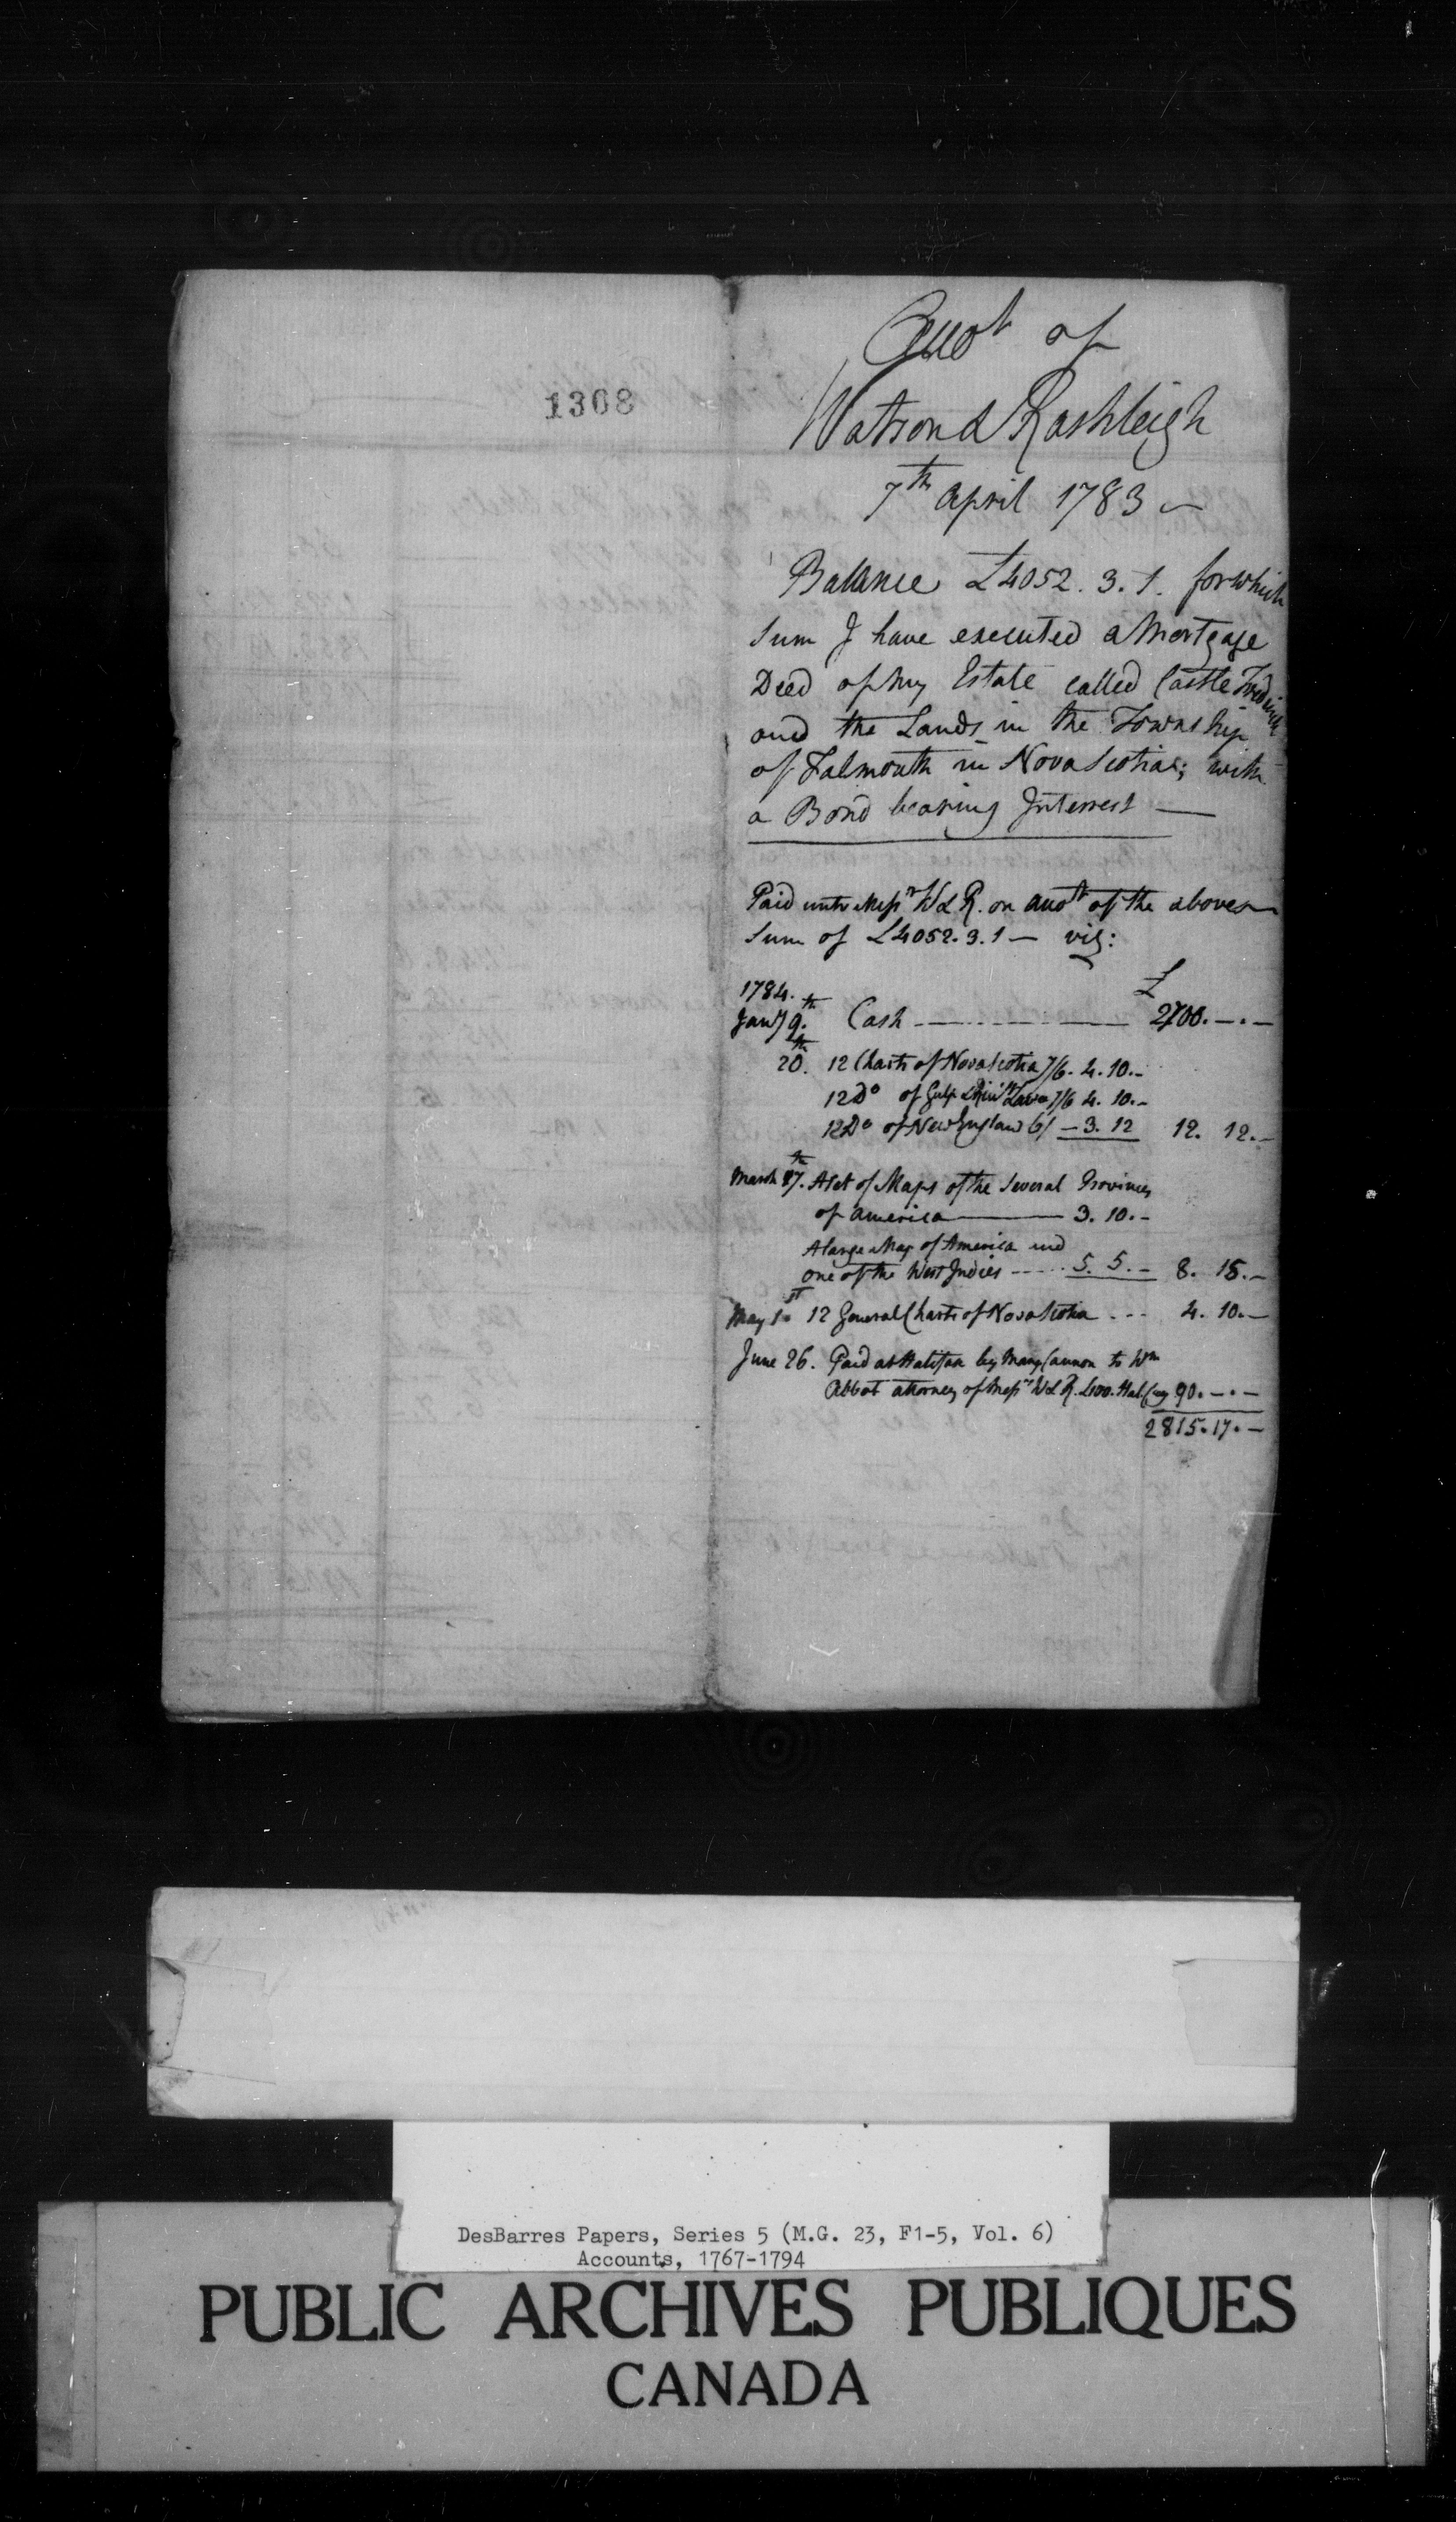 1308
Accot of
Watson & Rashleigh
7th April 1783
Balance £4052. 3. 1. for which
Sum I have executed a Mortgage
Deed of my Estate called Castle Frederick
and the Lands in the Township
of Falmouth in Nova Scotia; with
a Bond bearing Interrest —
Paid unto Messrs W & R. on Accot of the above
Sum of £4052. 3. 1 — viz:
1784. £
Jany 9th. Cash — 2700. —. —
20th. 12 Charts of Nova Scotia 7/6. 4. 10. -
12 Do of Gulf & Rivr St Lawr 7/6 4. 10. -
12 Do of New England 6/ — 3. 12 12. 12. —
March 17th. A Set of Maps of the Several Provinces
of America — 3. 10. -
A large Map of America and
one of the West Indies ---- 5. 5. — 8. 15. —
May 1st 12 General Charts of Nova Scotia - - - 4. 10. —
June 26. Paid at Halifax by Mary Cannon to Wm
Abbot attorney of Messrs W & R. £100. Hal. Cuy 90. —. —
2815. 17. —
DesBarres Papers, Series 5 (M.G. 23, F1-5, Vol. 6)
Accounts, 1767-1794
PUBLIC ARCHIVES PUBLIQUES
CANADA